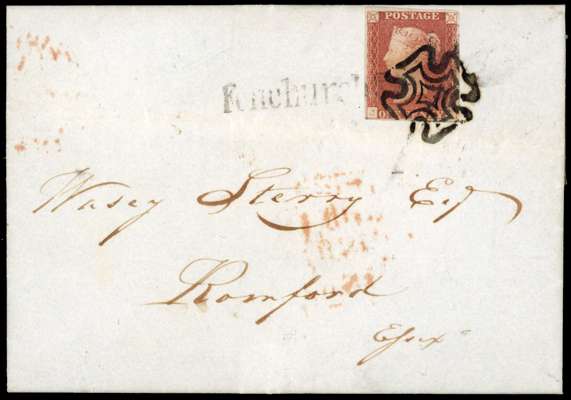 POSTAGE
Fenchurch
Wasey Sterry Esq
Romford
Essex